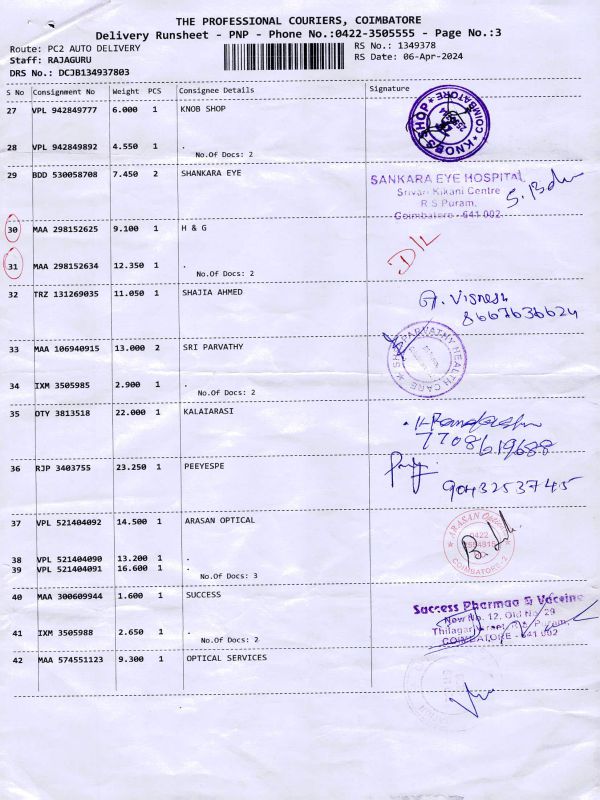 THE PROFESSIONAL COURIERS, COIMBATORE
Delivery Runsheet - PNP - Phone No.:0422-3505555 - Page No.:3
Route: PC2 AUTO DELIVERY RS No.: 1349378
Staff: RAJAGURU RS Date: 06-Apr-2024
DRS No.: DCJB134937803
S No Consignment No Weight PCS Consignee Details Signature
27 VPL 942849777 6.000 1 KNOB SHOP
KNOBS SHOP COIMBATORE
28 VPL 942849892 4.550 1 .
No.Of Docs: 2
29 BDD 530058708 7.450 2 SHANKARA EYE
SANKARA EYE HOSPITAL
Srivari Kikani Centre
R S Puram,
Coimbatore - 641 002
30 MAA 298152625 9.100 1 H & G
D/L
31 MAA 298152634 12.350 1 .
No.Of Docs: 2
32 TRZ 131269035 11.050 1 SHAJIA AHMED
8667636624
33 MAA 106940915 13.000 2 SRI PARVATHY
PARVATHY HEALTH CARE
34 IXM 3505985 2.900 1 .
No.Of Docs: 2
35 DTY 3813518 22.000 1 KALAIARASI
7708619688
36 RJP 3403755 23.250 1 PEEYESPE
9043253745
37 VPL 521404092 14.500 1 ARASAN OPTICAL
ARASAN Opticals
0422
COIMBATORE-2
38 VPL 521404090 13.200 1 .
39 VPL 521404091 16.600 1 .
No.Of Docs: 3
40 MAA 300609944 1.600 1 SUCCESS
Success Pharmaa & Vaccine
New No. 12, Old No. 29
COIMBATORE - 641 002
41 IXM 3505988 2.650 1 .
No.Of Docs: 2
42 MAA 574551123 9.300 1 OPTICAL SERVICES